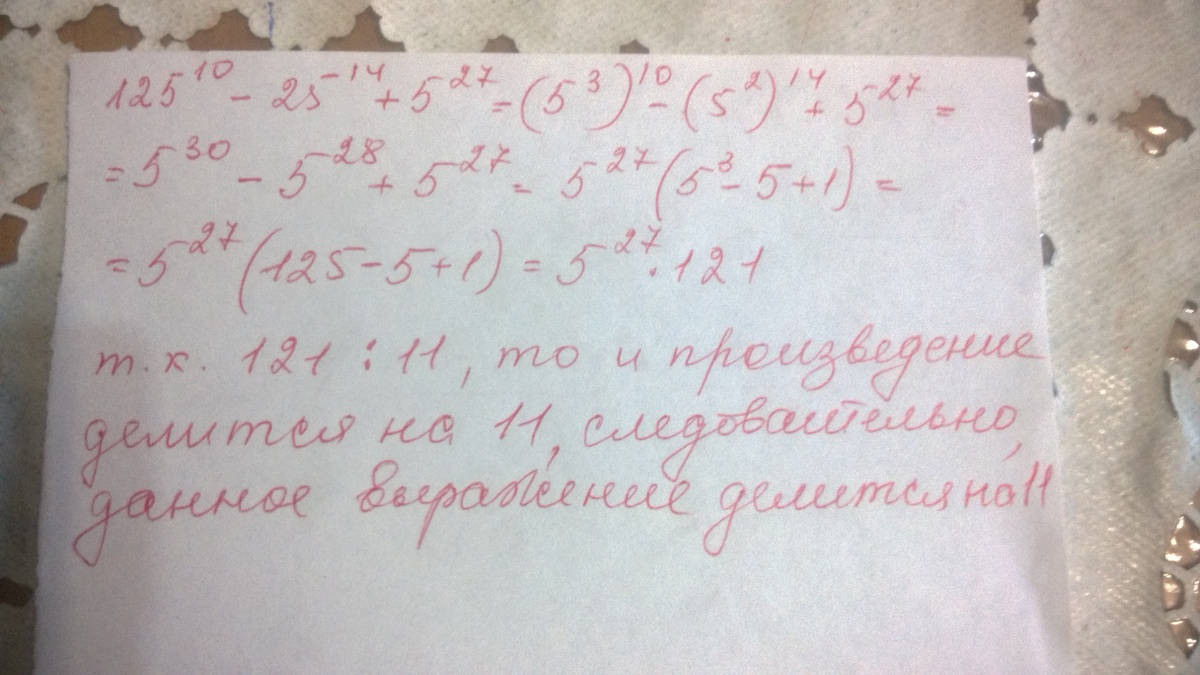 125¹⁰ - 25⁻¹⁴ + 5²⁷ = (5³)¹⁰ - (5²)¹⁴ + 5²⁷ =
= 5³⁰ - 5⁻²⁸ + 5²⁷ = 5²⁷(5³ - 5 + 1) =
= 5²⁷(125 - 5 + 1) = 5²⁷ · 121
т.к. 121 : 11, то и произведение
делится на 11, следовательно,
данное выражение делится на 11